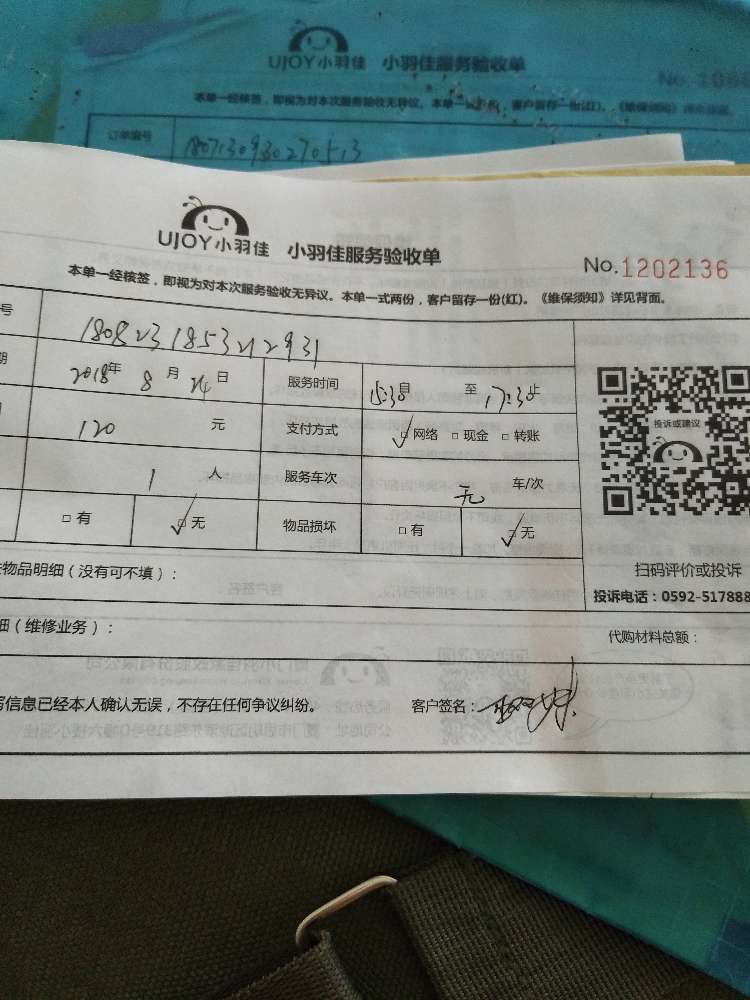 UJOY小羽佳 小羽佳服务验收单
No.
本单一经核签，即视为对本次服务验收无异议。
客户留存一份(红)。《维保须知》
订单编号 1807130930270513
UJOY小羽佳 小羽佳服务验收单
No.1202136
本单一经核签，即视为对本次服务验收无异议。本单一式两份，客户留存一份(红)。《维保须知》详见背面。
号
期 2018年 8月 24日 服务时间 15:30起 至 17:30止
120 元 支付方式 ☑网络 □现金 □转账
1 人 服务车次 无 车/次
□有 ☑无 物品损坏 □有 ☑无
投诉或建议
物品明细（没有可不填）：
扫码评价或投诉
投诉电话：0592-517888
细（维修业务）：
代购材料总额：
写信息已经本人确认无误，不存在任何争议纠纷。 客户签名：